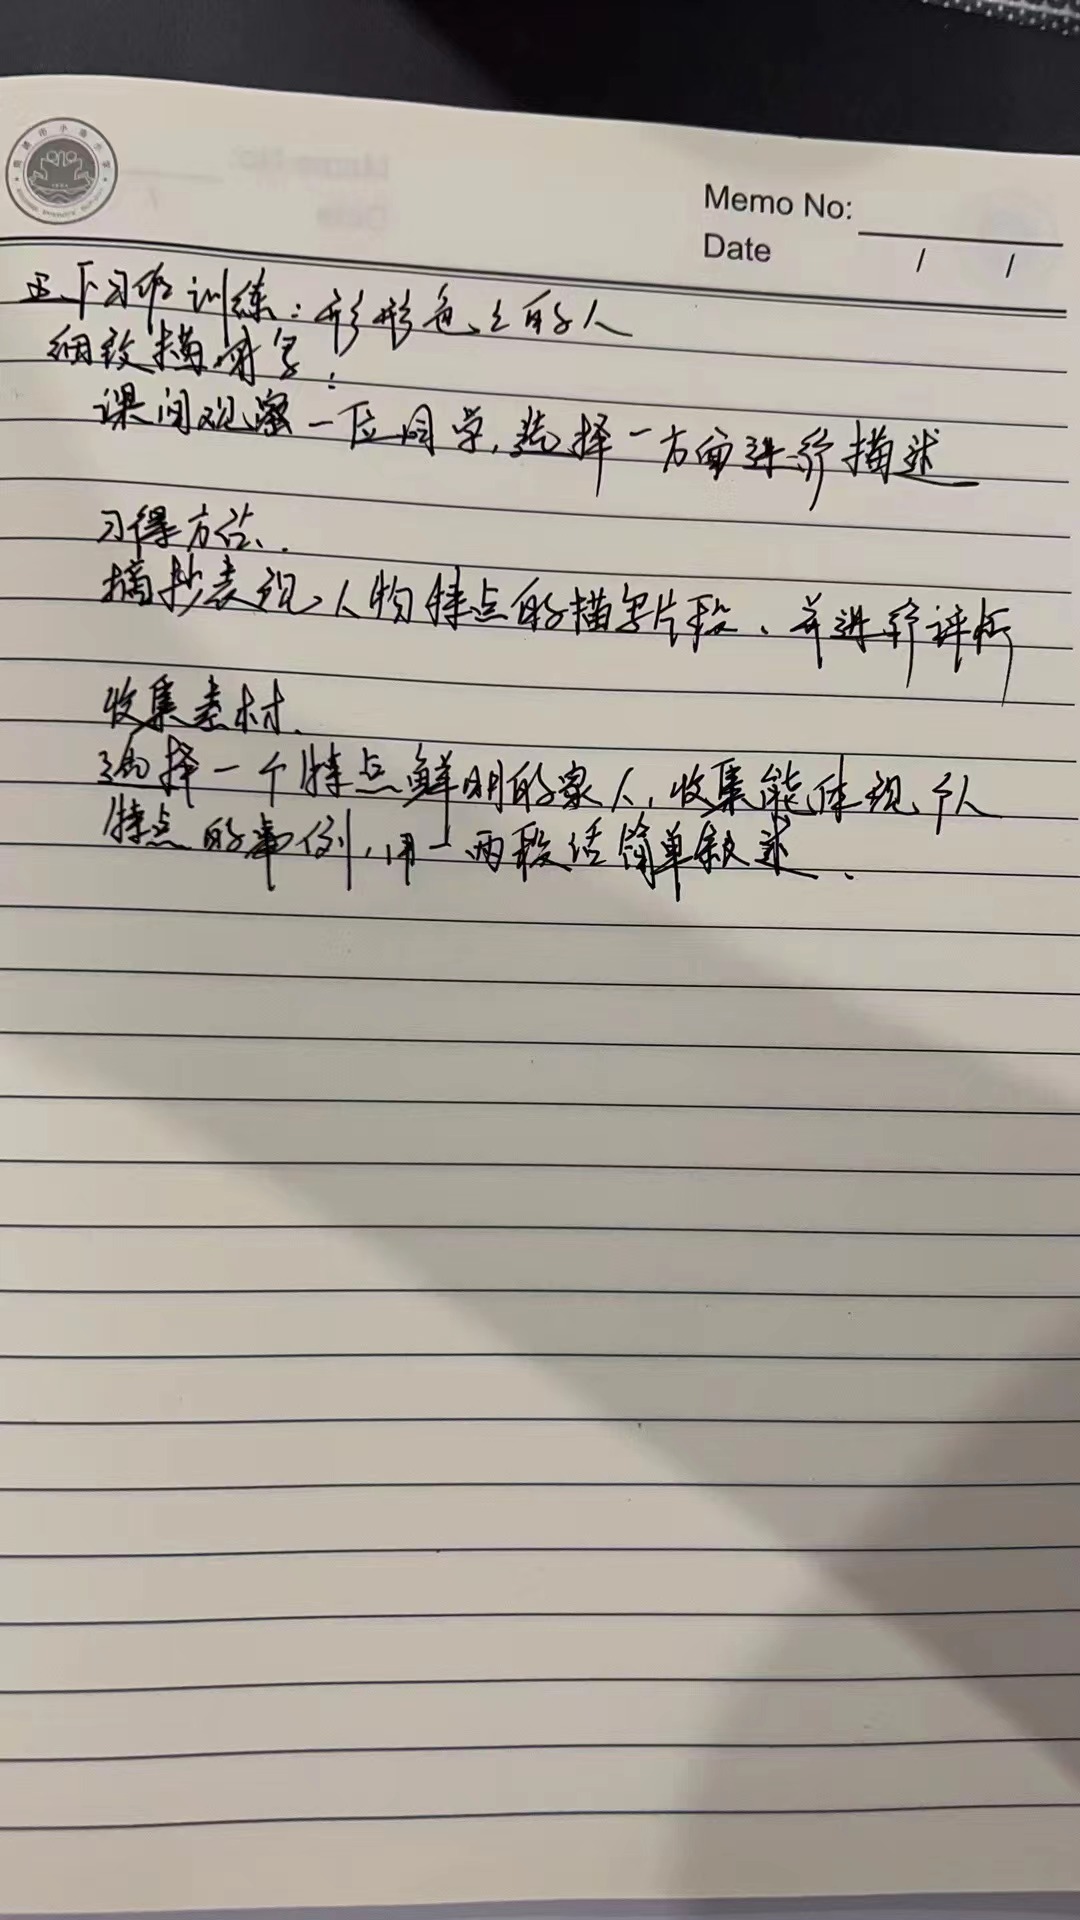 Memo No:
Date / /
五下习作训练:形形色色的人
细致描写:
课间观察一位同学,选择一方面进行描述
习得方法.
摘抄表现人物特点的描写片段、并进行评析
收集素材.
选择一个特点鲜明的家人,收集能体现个人
特点的事例,用一两段话简单叙述.